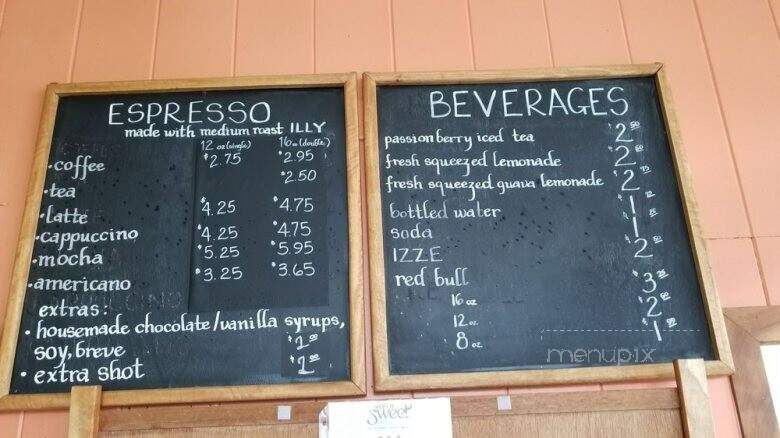 ESPRESSO
made with medium roast ILLY
12 oz (single) 16oz (double)
• coffee $2.75 $2.95
• tea $2.50
• latte $4.25 $4.75
• cappuccino $4.25 $4.75
• mocha $5.25 $5.95
• americano $3.25 $3.65
extras:
• housemade chocolate/vanilla syrups,
soy, breve
• extra shot
BEVERAGES
passion berry iced tea $2
fresh squeezed lemonade $2
fresh squeezed guava lemonade $2
bottled water $1
soda $1
IZZE $2
red bull
16 oz $3
12 oz $2
8 oz $1
menupix
Sweet